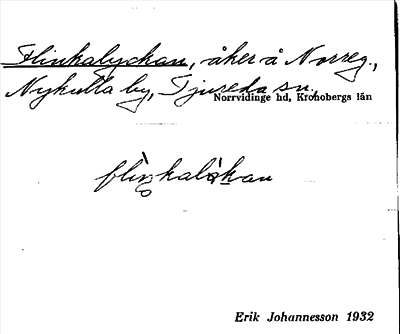 Flinkalyckan, åker å Norreg.,
Nykulla by, Tjureda sn.
Norrvidinge hd, Kronobergs län
flinkalåkan
Erik Johannesson 1932